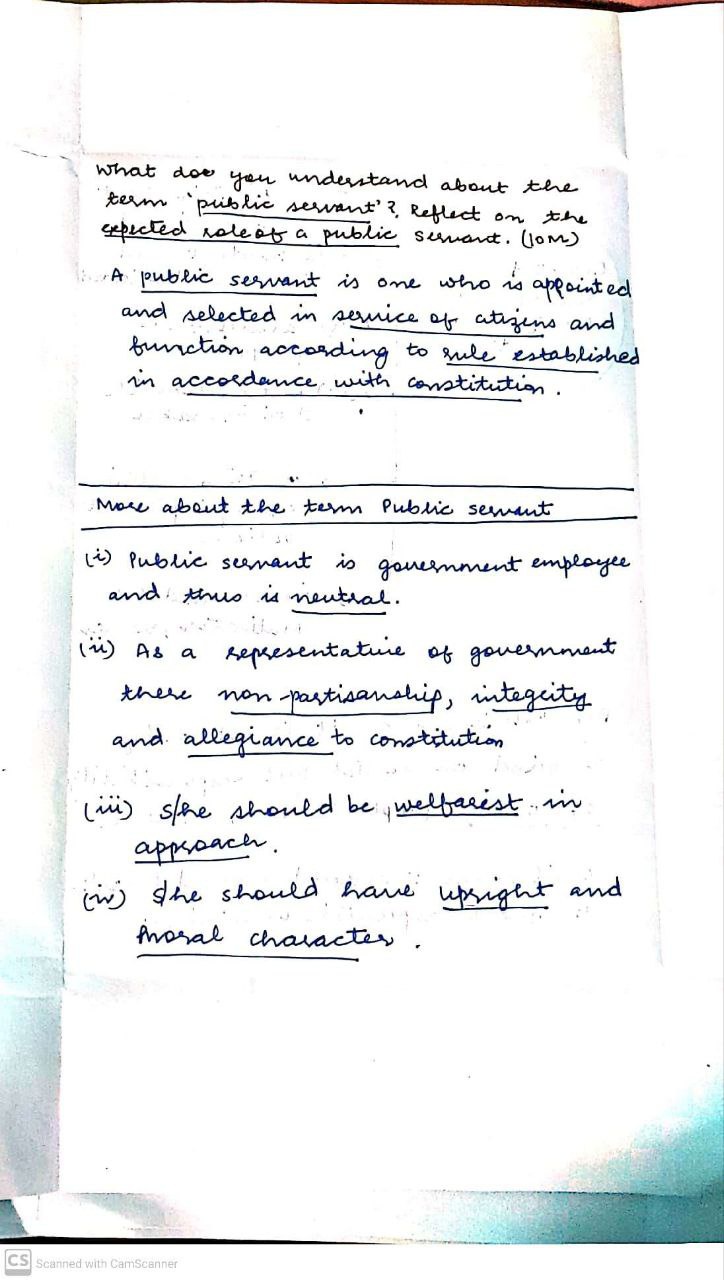 What doe you understand about the
term 'public servant'? Reflect on the
expected role of a public servant. (10M)
A public servant is one who is appointed
and selected in service of citizens and
function according to rule established
in accordance with constitution.
More about the term Public servant
(i) Public servant is government employee
and thus is neutral.
(ii) As a representative of government
there non-partisanship, integrity
and allegiance to constitution
(iii) s/he should be welfarist in
approach.
(iv) S/he should have upright and
moral character.
CS Scanned with CamScanner